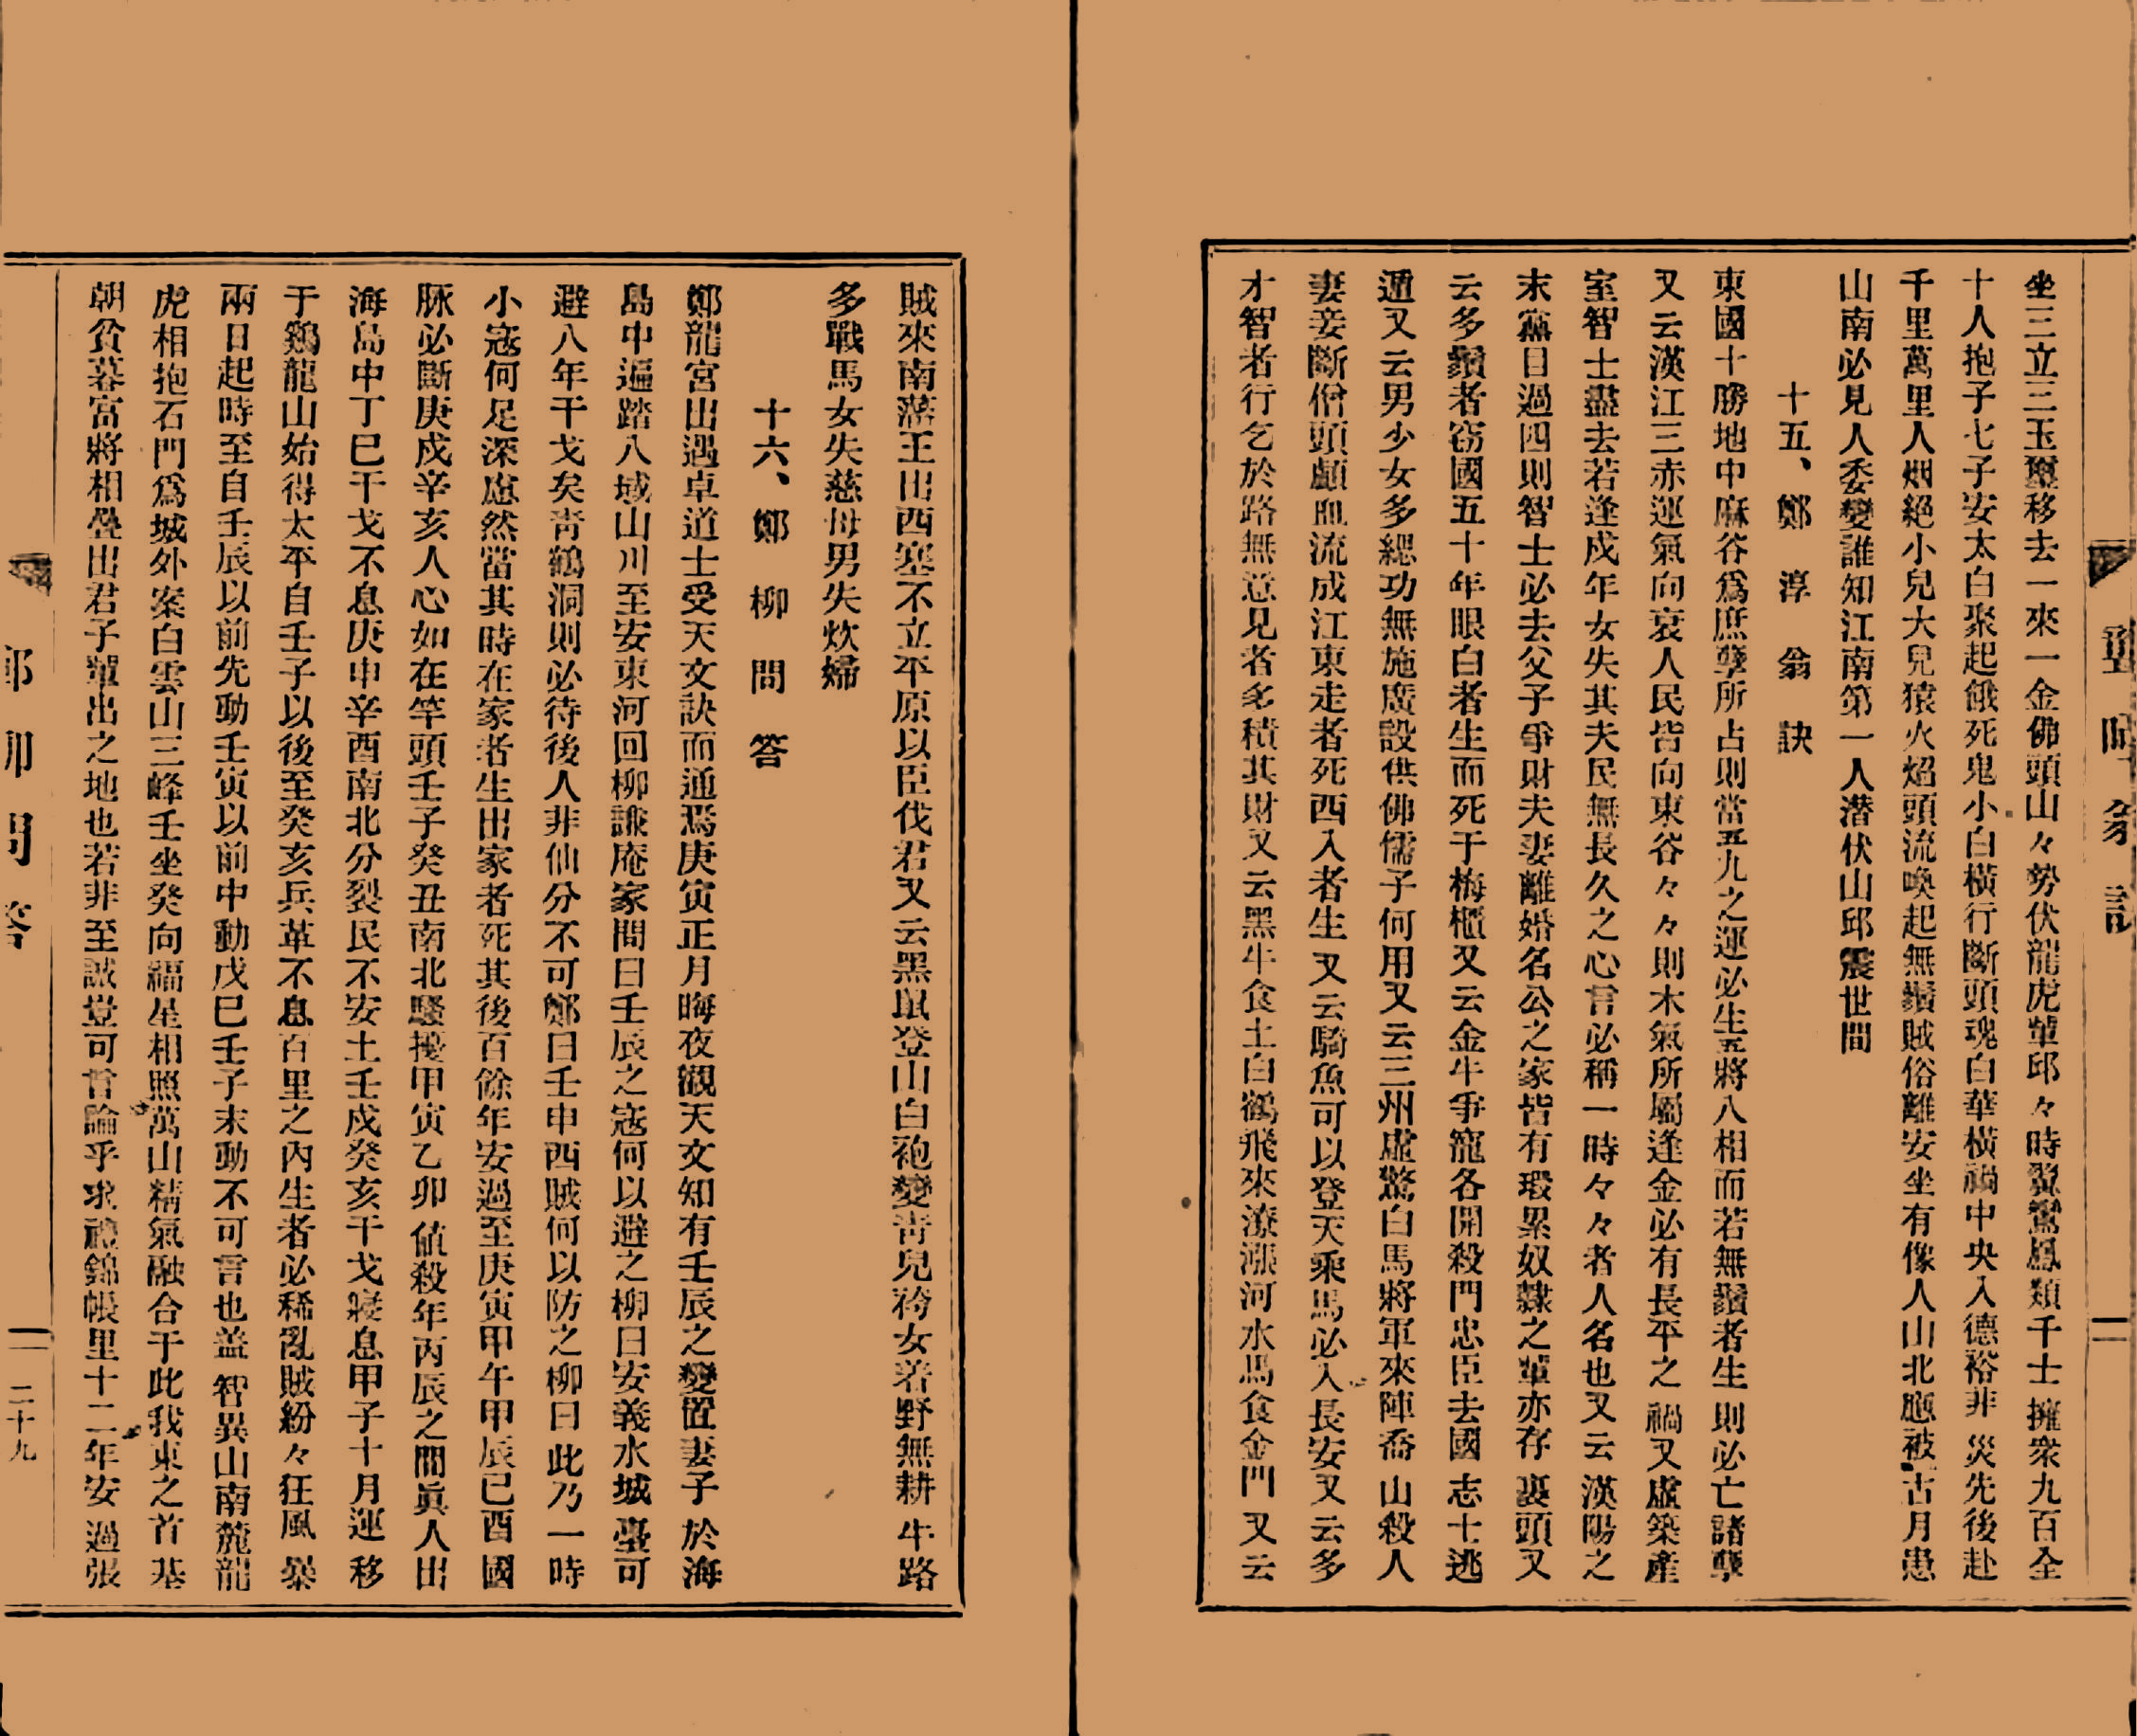 坐三立三玉璽移去一來一金佛頭山々勢伏龍虎輩邱々時翼鸞鳳類千士擁衆九百全
十人抱子七子安太白聚起餓死鬼小白橫行斷頭魂白華橫禍中央入德裕非災先後赴
千里萬里人烟絕小兒大兒猿火焰頭流喚起無鬚賊俗離安坐有像人山北應被古月患
山南必見人委變誰知江南第一人潛伏山邱震世間
十五、鄭淳翁訣
東國十勝地中麻谷爲庶孽所占則當五九之運必生五將八相而若無鬚者生則必亡諸孽
又云漢江三赤運氣向衰人民皆向東谷々々則木氣所屬逢金必有長平之禍又虛築產
室智士盡去若逢戍年女失其夫民無長久之心言必稱一時々々者人名也又云漢陽之
末黨目過四則智士必去父子爭財夫妻離婚名公之家皆有瑕累奴隷之輩亦存裹頭又
云多鬚者窃國五十年眼白者生而死于梅櫃又云金牛爭寵各開殺門忠臣去國志士逃
遁又云男少女多緦功無施廣設供佛儒子何用又云三州虛驚白馬將軍來陣喬山殺人
妻妾斷僧頭顱血流成江東走者死西入者生又云騎魚可以登天乘馬必入長安又云多
才智者行乞於路無意見者多積其財又云黑牛食土白鶴飛來潦漲河水馬食金門又云
賊來南藩王出西塞不立平原以臣伐君又云黑鼠登山白袍變靑兒袴女着野無耕牛路
多戰馬女失慈母男失炊婦
十六、鄭柳問答
鄭龍宮出遇卓道士受天文訣而通焉庚寅正月晦夜觀天文知有壬辰之變置妻子於海
島中遍踏八域山川至安東河回柳謙庵家問曰壬辰之寇何以避之柳曰安義水城臺可
避八年干戈矣靑鶴洞則必待後人非仙分不可鄭曰壬申西賊何以防之柳曰此乃一時
小寇何足深慮然當其時在家者生出家者死其後百餘年安過至庚寅甲午甲辰己酉國
脉必斷庚戍辛亥人心如在竿頭壬子癸丑南北騷擾甲寅乙卯値殺年丙辰之間眞人出
海島中丁巳干戈不息庚申辛酉南北分裂民不安土壬戍癸亥干戈寢息甲子十月運移
于鷄龍山始得太平自壬子以後至癸亥兵革不息百里之內生者必稀亂賊紛々狂風暴
兩日起時至自壬辰以前先動壬寅以前中動戊巳壬子末動不可言也盖智異山南麓龍
虎相抱石門爲城外案白雲山三峰壬坐癸向福星相照萬山精氣融合于此我東之首基
朝貧暮富將相疊出君子輩出之地也若非至誠豈可言論乎求禮錦帳里十二年安過張
鄭柳問答
二十九